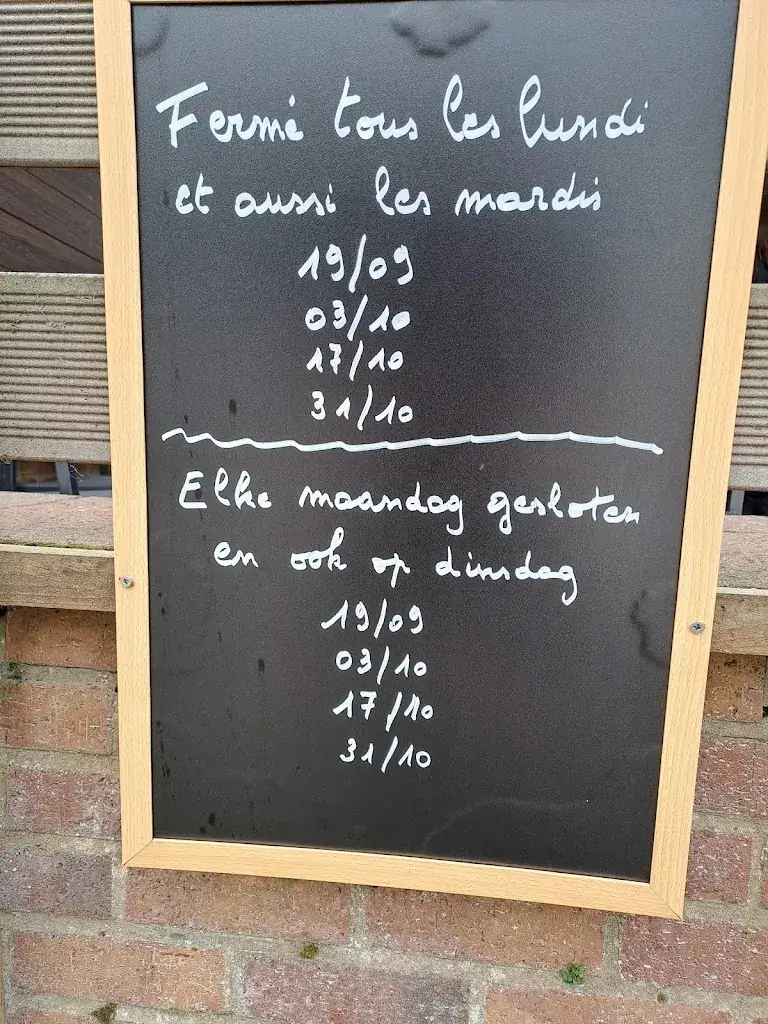 Fermé tous les lundi
et aussi les mardis
19/09
03/10
17/10
31/10
Elke maandag gesloten
en ook op dinsdag
19/09
03/10
17/10
31/10